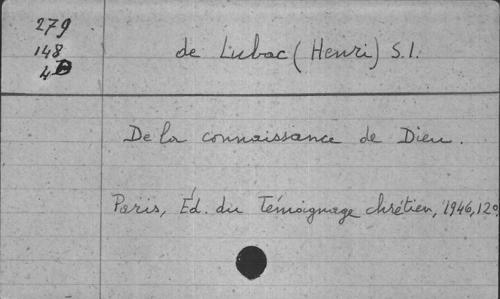 279
148
4D
de Lubac (Henri) S.I.
De la connaissance de Dieu.
Paris, Éd. du Témoignage chrétien, 1946, 12º